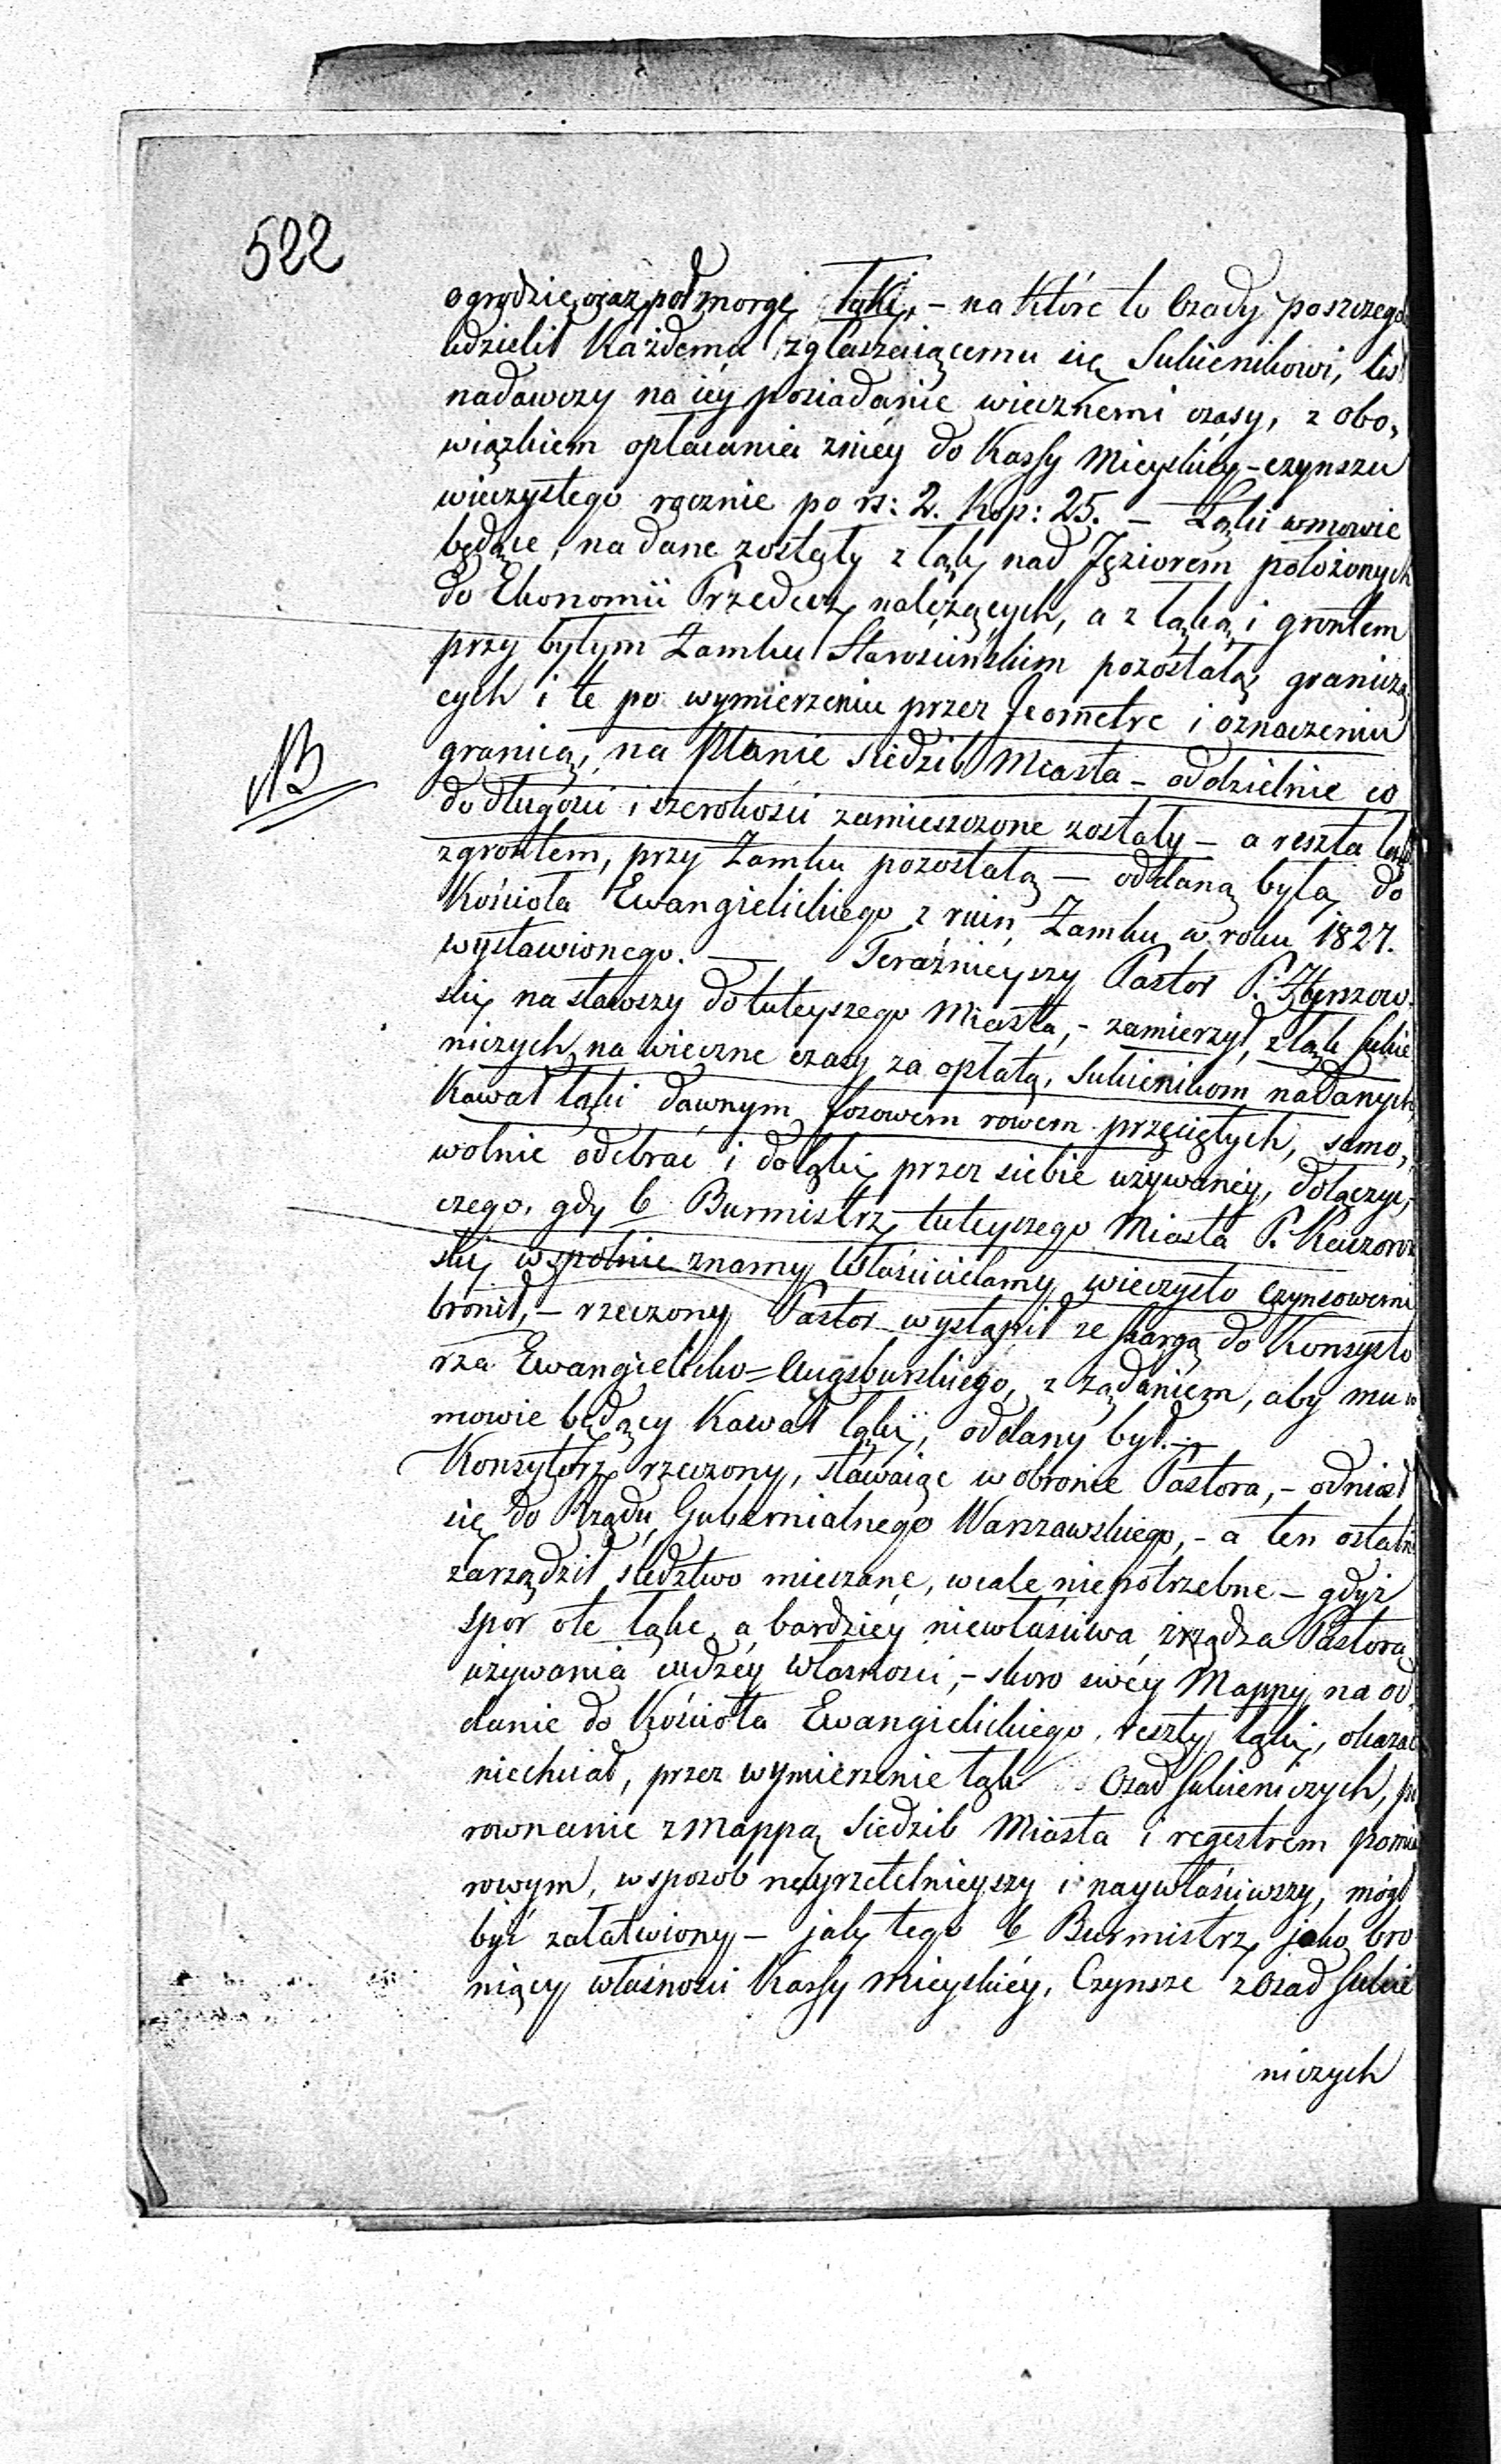 522
ogrodzie, oraz pół morgi łąki, – na które to Osady poszczegól
udzielił każdemu zgłaszaiącemu się Sukienikowi, list
nadawczy na iéy posiadanie wiecznemi czasy, z obo,
wiązkiem opłacania zniéy do Kassy Mieyskiéy – czynszu
wieczystego rocznie po rs: 2. kop: 25. – Łąki wmowie
będące, nadane zostały z łąk nad Jeziorem położonych
do Ekonomii Przedecz należących, a z łąką i grontem
przy byłym Zamku Starościńskim pozostałą, graniczą
cych i te po wymierzeniu przez Jeometrę i oznaczeniu
granicą, na Planie siedzib Miasta – oddzielnie co
NB
do długości i szerokości zamieszczone zostały – a reszta łąk
zgrontem, przy Zamku pozostałą – oddaną byłą do
Kościoła Ewangielickiego z ruin Zamku w roku 1827.
wystawionego. – Teraźnieyszy Pastor P.
ski nastawszy do tuteyszego Miasta, – zamierzył, z łąk sukie
niczych na wieczne czasy za opłatą, Sukienikom nadanych,
Kawał łąki dawnym fosowem rowem przęciętych, samo,
wolnie odebrać i do łąki przez siebie używanéy, dołączyć,
czego, gdy b Burmistrz tuteyszego Miasta P. Kaczorow
ski wspolnie znamy Właścicielamy wieczysto czynsowemi
bronił, – rzeczony Pastor wystąpił ze skargą do Konsysto
rza Ewangielicko=Augsburskiego, z żądaniem, aby mu w
mowie będący Kawał łąki, oddany był. –
Konsystorz rzeczony, stawaiąc w obronie Pastora, – odniosł
się do Rządu Gubernialnego Warszawskiego, – a ten ostatni
Zarządził sledztwo mieczane, wcale niepotrzebne – gdyż
spor o te łąkę, a bardziéy niewłaściwa żrządza Pastora
używania cudzéy własności, – skoro swéy Mappy na od,
danie do Kościoła Ewangielickiego, reszty łąki, okazać
niechciał, przez wymierzenie łąk Osad sukieniczych, po
rownanie z mappą siedzib Miasta i regestrem pomia
rowym, w sposob nayrzetelnieyszy i naywłaściwszy, mógł
być załatwiony – jak tego b Burmistrz, jako bro
niący własności Kassy mieyskiéy, Czynsze z Osad Sukie
niczych